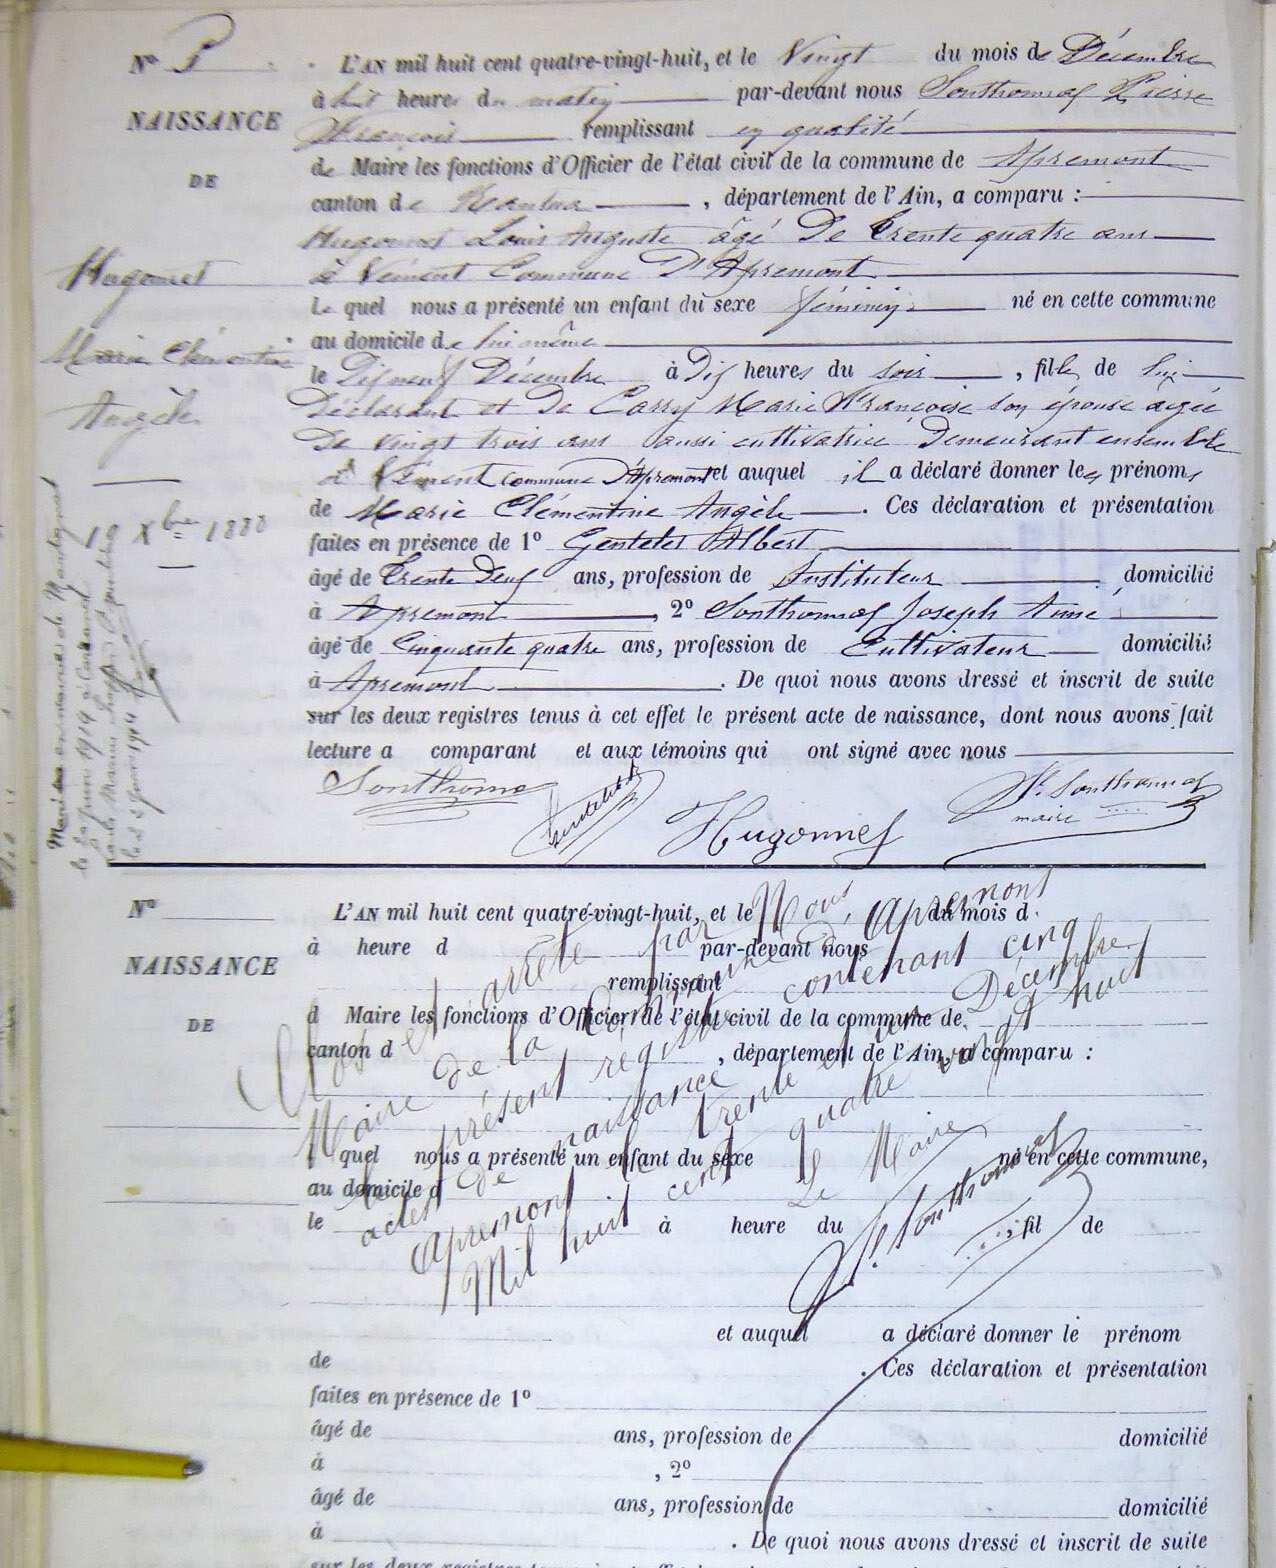 N° 5
L'AN mil huit cent quatre-vingt-huit, et le Vingt du mois de Décembre
à huit heures du matin par-devant nous Sonthonnas Pierre
NAISSANCE
François remplissant en qualité
DE
de Maire les fonctions d'Officier de l'état civil de la commune de Apremont
canton de Nantua, département de l'Ain, a comparu :
Hugonnet Louis Auguste âgé De trente quatre ans
Hugonnet
à Commune D'Apremont
Le quel nous a présenté un enfant du sexe féminin né en cette commune
au domicile de lui même
Marie Clémentine
le Dix neuf Décembre à Dix heures du soir, fille de lui
Angèle
Déclarant et De Carry Marie Françoise son épouse agée
De vingt trois ans aussi cultivatrice Demeurant ensemble
à commune D'Apremont et auquel il a déclaré donner les prénoms
de Marie Clémentine Angèle. Ces déclaration et présentation
19 Xbre 1888
faites en présence de 1° Albert
âgé de trente Deux ans, profession de Instituteur domicilié
à Apremont, 2° Sonthonnas Joseph Aimé
âgé de Cinquante quatre ans, profession de Cultivateur domicilié
à Apremont. De quoi nous avons dressé et inscrit de suite
sur les deux registres tenus à cet effet le présent acte de naissance, dont nous avons fait
lecture a comparant et aux témoins qui ont signé avec nous
Sonthonna
Hugonnet
P. Sonthonnas
maire
N°
L'AN mil huit cent quatre-vingt-huit, et le du mois d
à heure d par-devant nous
NAISSANCE
remplissant
DE
d Maire les fonctions d'Officier de l'état civil de la commune de
canton d , département de l'Ain, a comparu :
quel nous a présenté un enfant du sexe né en cette commune,
au domicile d
le à heure du , fil de
et auquel a déclaré donner le prénom
de . Ces déclaration et présentation
faites en présence de 1°
âgé de ans, profession de domicilié
à , 2°
âgé de ans, profession de domicilié
à . De quoi nous avons dressé et inscrit de suite
Clos et arrêté par Nous,
Maire de la Commune D'Apremont
le présent registre contenant cinq
actes De naissance
Apremont le trente et un Décembre
Mil huit cent quatre vingt huit
Le Maire
P. Sonthonnas